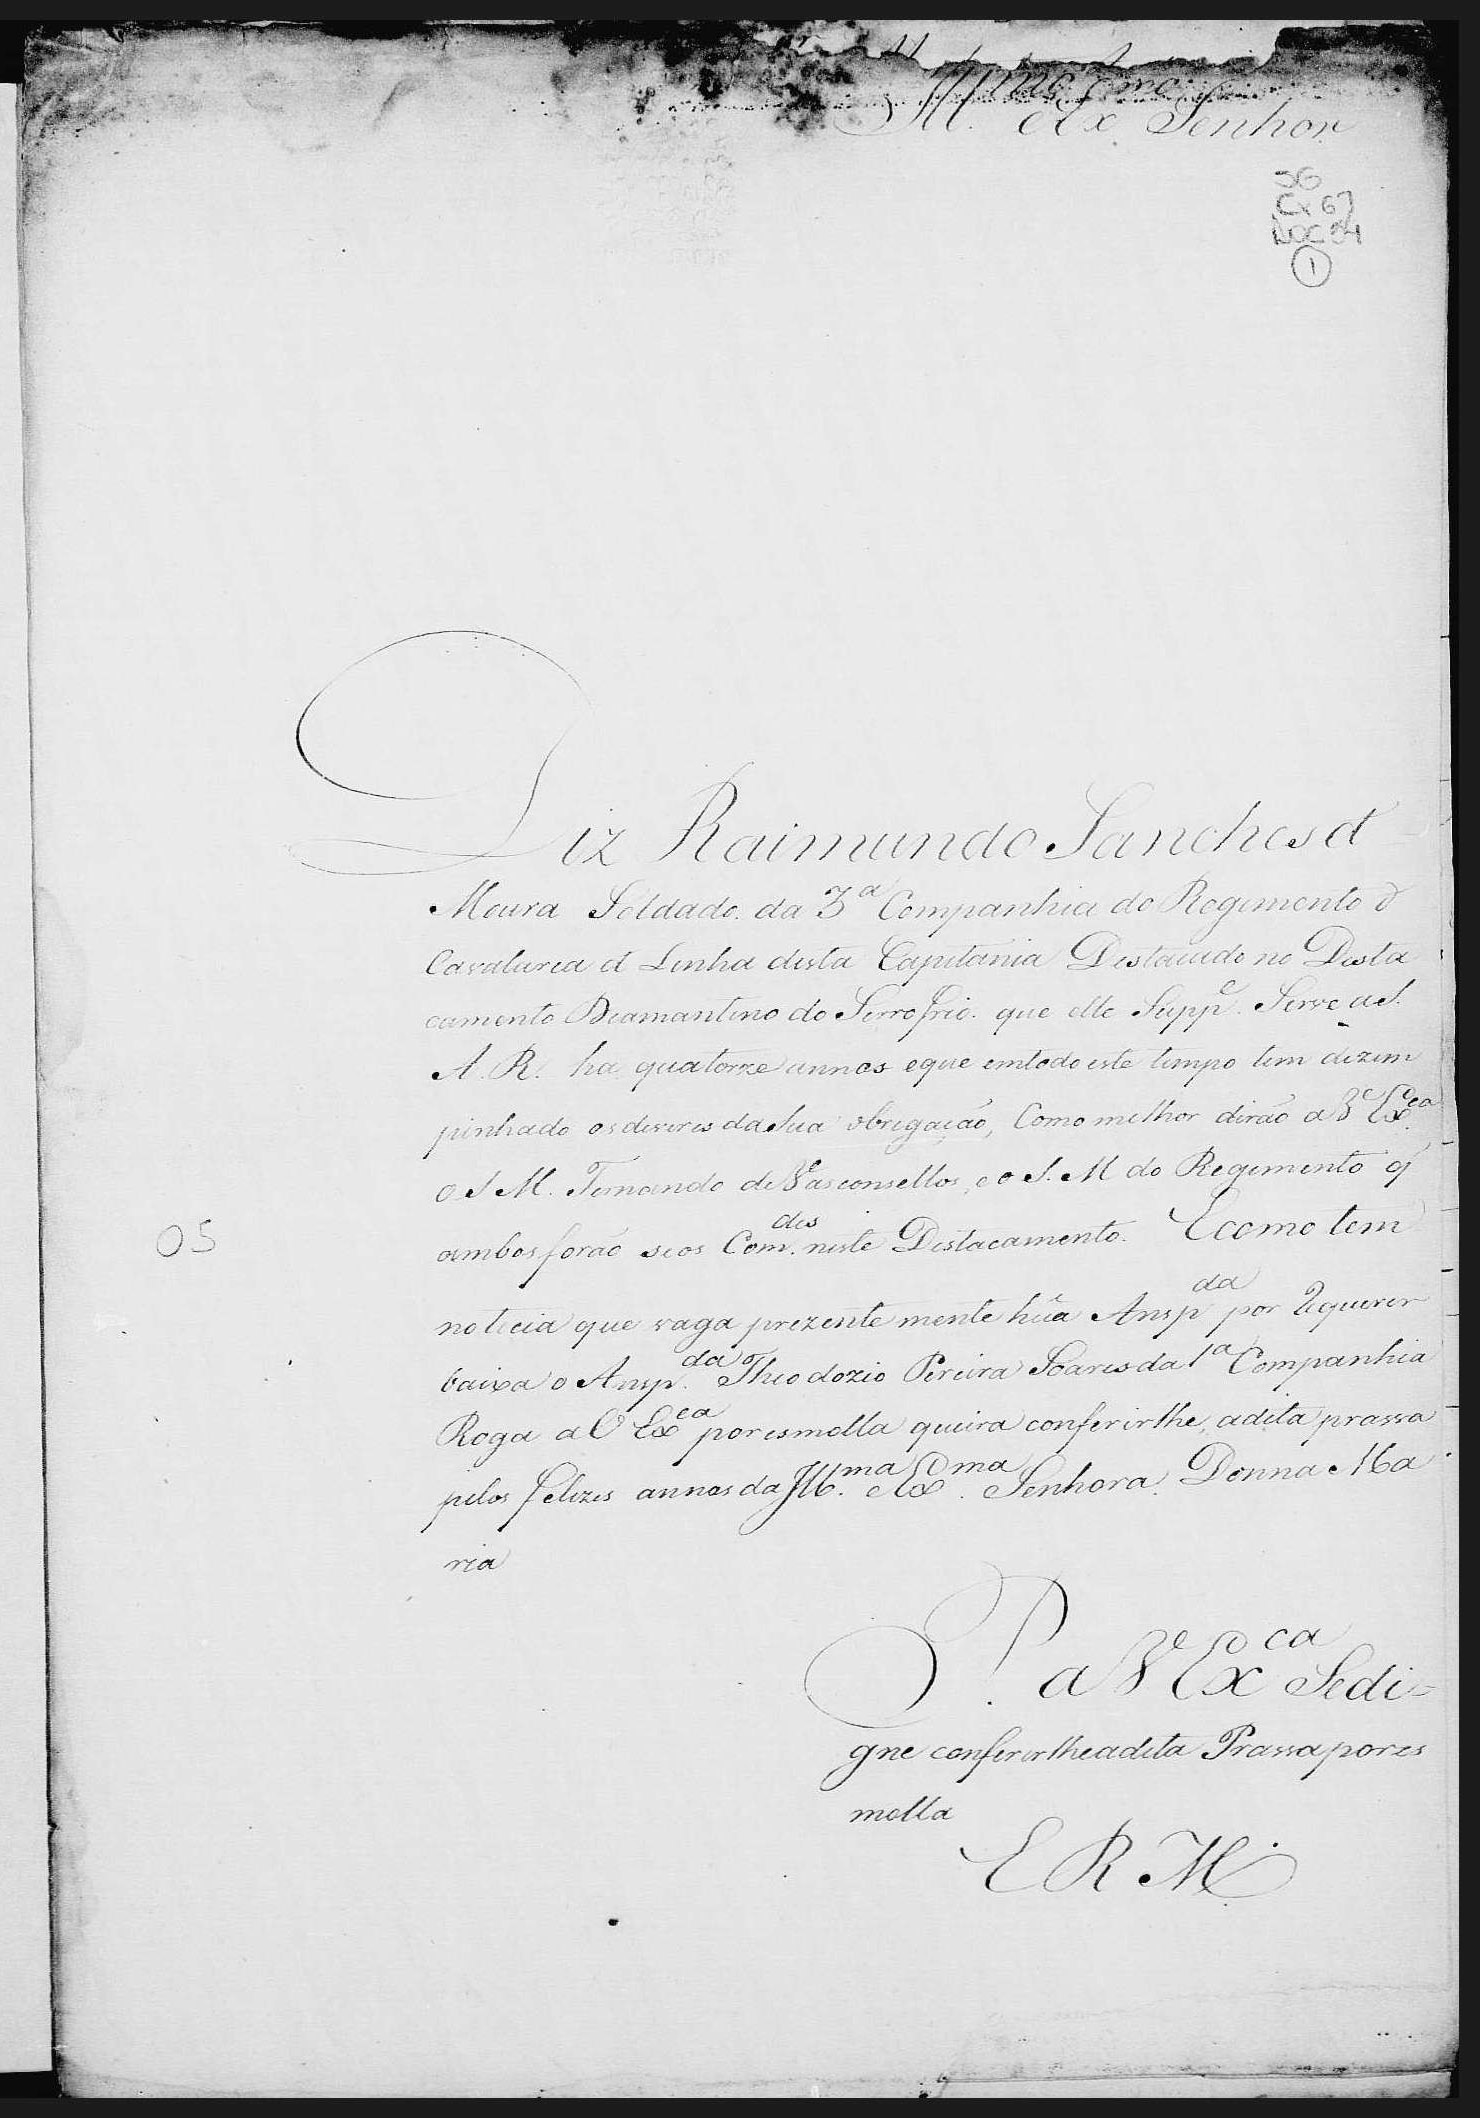 Ill.mo e Ex.mo Senhor
SG
CX 67
DOC 54
1
Diz Raimundo Sanches d
Moura Soldado da 3.a Companhia do Regimento d
Cavalaria d Linha desta Capitania Destacado no Desta
camento Diamantino do Serro frio. que elle Supp.e Serve a S.
A. R. ha quatorze annos e que emtodo este tempo tem dezem
penhado os deveres da Sua obrigação, Como melhor dirão a V. Ex.ca
o S M. Fernando de Vasconsellos, e o S. M do Regimento q
ambos forão seos Com.des neste Destacamento. E como tem
noticia que vaga prezente mente hũa Ansp.da por Requerer
baixa o Ansp.da Theodozio Pereira Soares da 1a Companhia
Roga a V Ex.ca por esmolla queira conferirlhe, adita prassa
pelos felizes annos da Ill.ma e Ex.ma Senhora Donna Ma
ria
05
P. a V Ex.ca Sedi=
gne conferirlhe adita Prassa por es
molla
E R M